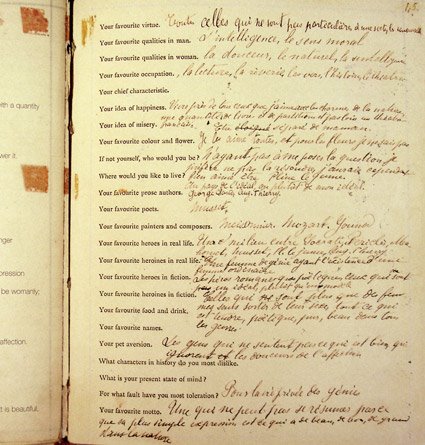 145.
Your favourite virtue. Toutes celles qui ne sont pas particulière à une secte, les universelles
Your favourite qualities in man. L'intelligence, le sens moral
Your favourite qualities in woman. La douceur, le naturel, l'intelligence
Your favourite occupation. La lecture, la rêverie, les vers, l'histoire, le théâtre
Your chief characteristic.
Your idea of happiness. Vivre près de tous ceux que j'aime avec les charmes de la nature
une quantité de livres et de partitions, et pas loin un théâtre
français.
Your idea of misery. Etre séparé de maman.
Your favourite colour and flower. Je les aime toutes, et pour les fleurs, je ne sais pas
If not yourself, who would you be? N'ayant pas à me poser la question, je
préfère ne pas la résoudre. J'aurais cependant
bien aimé être Pline le Jeune.
Where would you like to live? Au pays de l'idéal, ou plutôt de mon idéal.
Your favourite prose authors. George Sand, Aug. Thierry
Your favourite poets. Musset.
Your favourite painters and composers. Meissonier. Mozart. Gounod
Your favourite heroes in real life. Un milieu entre Socrate, Périclès,
Musset, Pline le Jeune, Aug. Thierry
Your favourite heroines in real life. Une femme de génie ayant l'existence d'une
femme ordinaire
Your favourite heroes in fiction. Les héros romanesques poétiques, ceux qui sont
un idéal plutôt qu'un modèle
Your favourite heroines in fiction. Celles qui sont plus que des femmes
sans sortir de leur sexe, tout ce qui
est tendre, poétique, pur, beau dans tous
les genres
Your favourite food and drink.
Your favourite names.
Your pet aversion. Les gens qui ne sentent pas ce qui est bien, qui
ignorent les douceurs de l'affection
What characters in history do you most dislike.
What is your present state of mind?
For what fault have you most toleration? Pour la vie privée des génies
Your favourite motto. Une qui ne peut pas se résumer parce
que sa plus simple expression est ce qui a de beau, de bon, de grand
dans la nature
with a quantity
wer it.
nger
pression
be womanly;
affection.
t is beautiful,